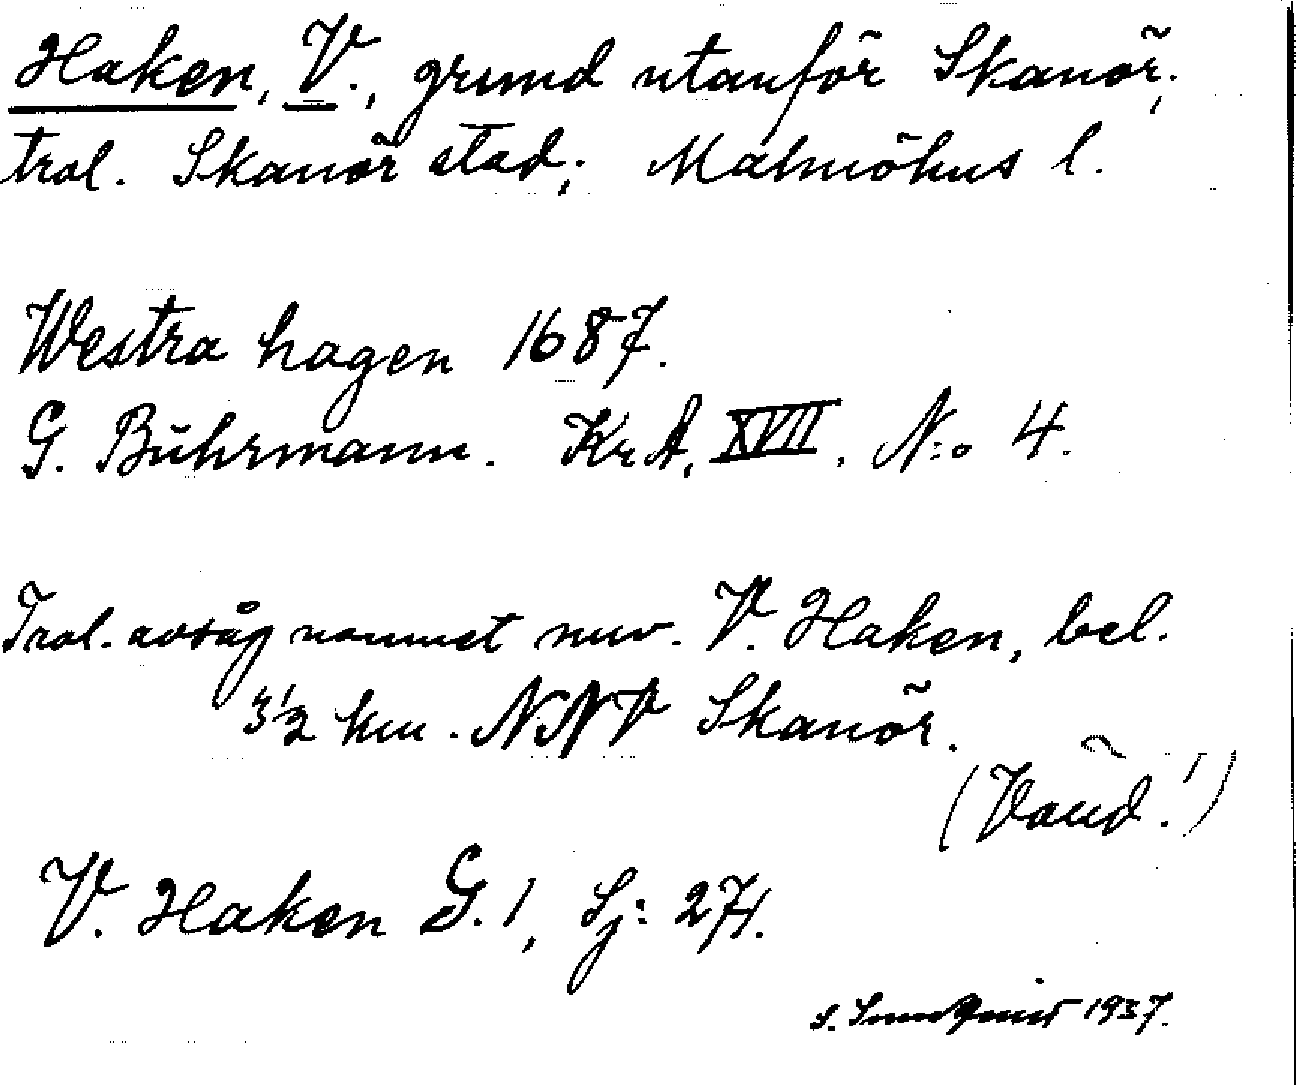 Haken, V., grund utanför Skanör,
trol. Skanör stad; Malmöhus l.
Westra hagen 1687.
G. Bührmann. Kr A, XVII, N:o 4.
Trol. avsåg namnet nuv. V. Haken, bel.
3 1/2 km. NNV Skanör.
(Vänd!)
V. Haken G. 1, Sj: 271.
S. 1937.